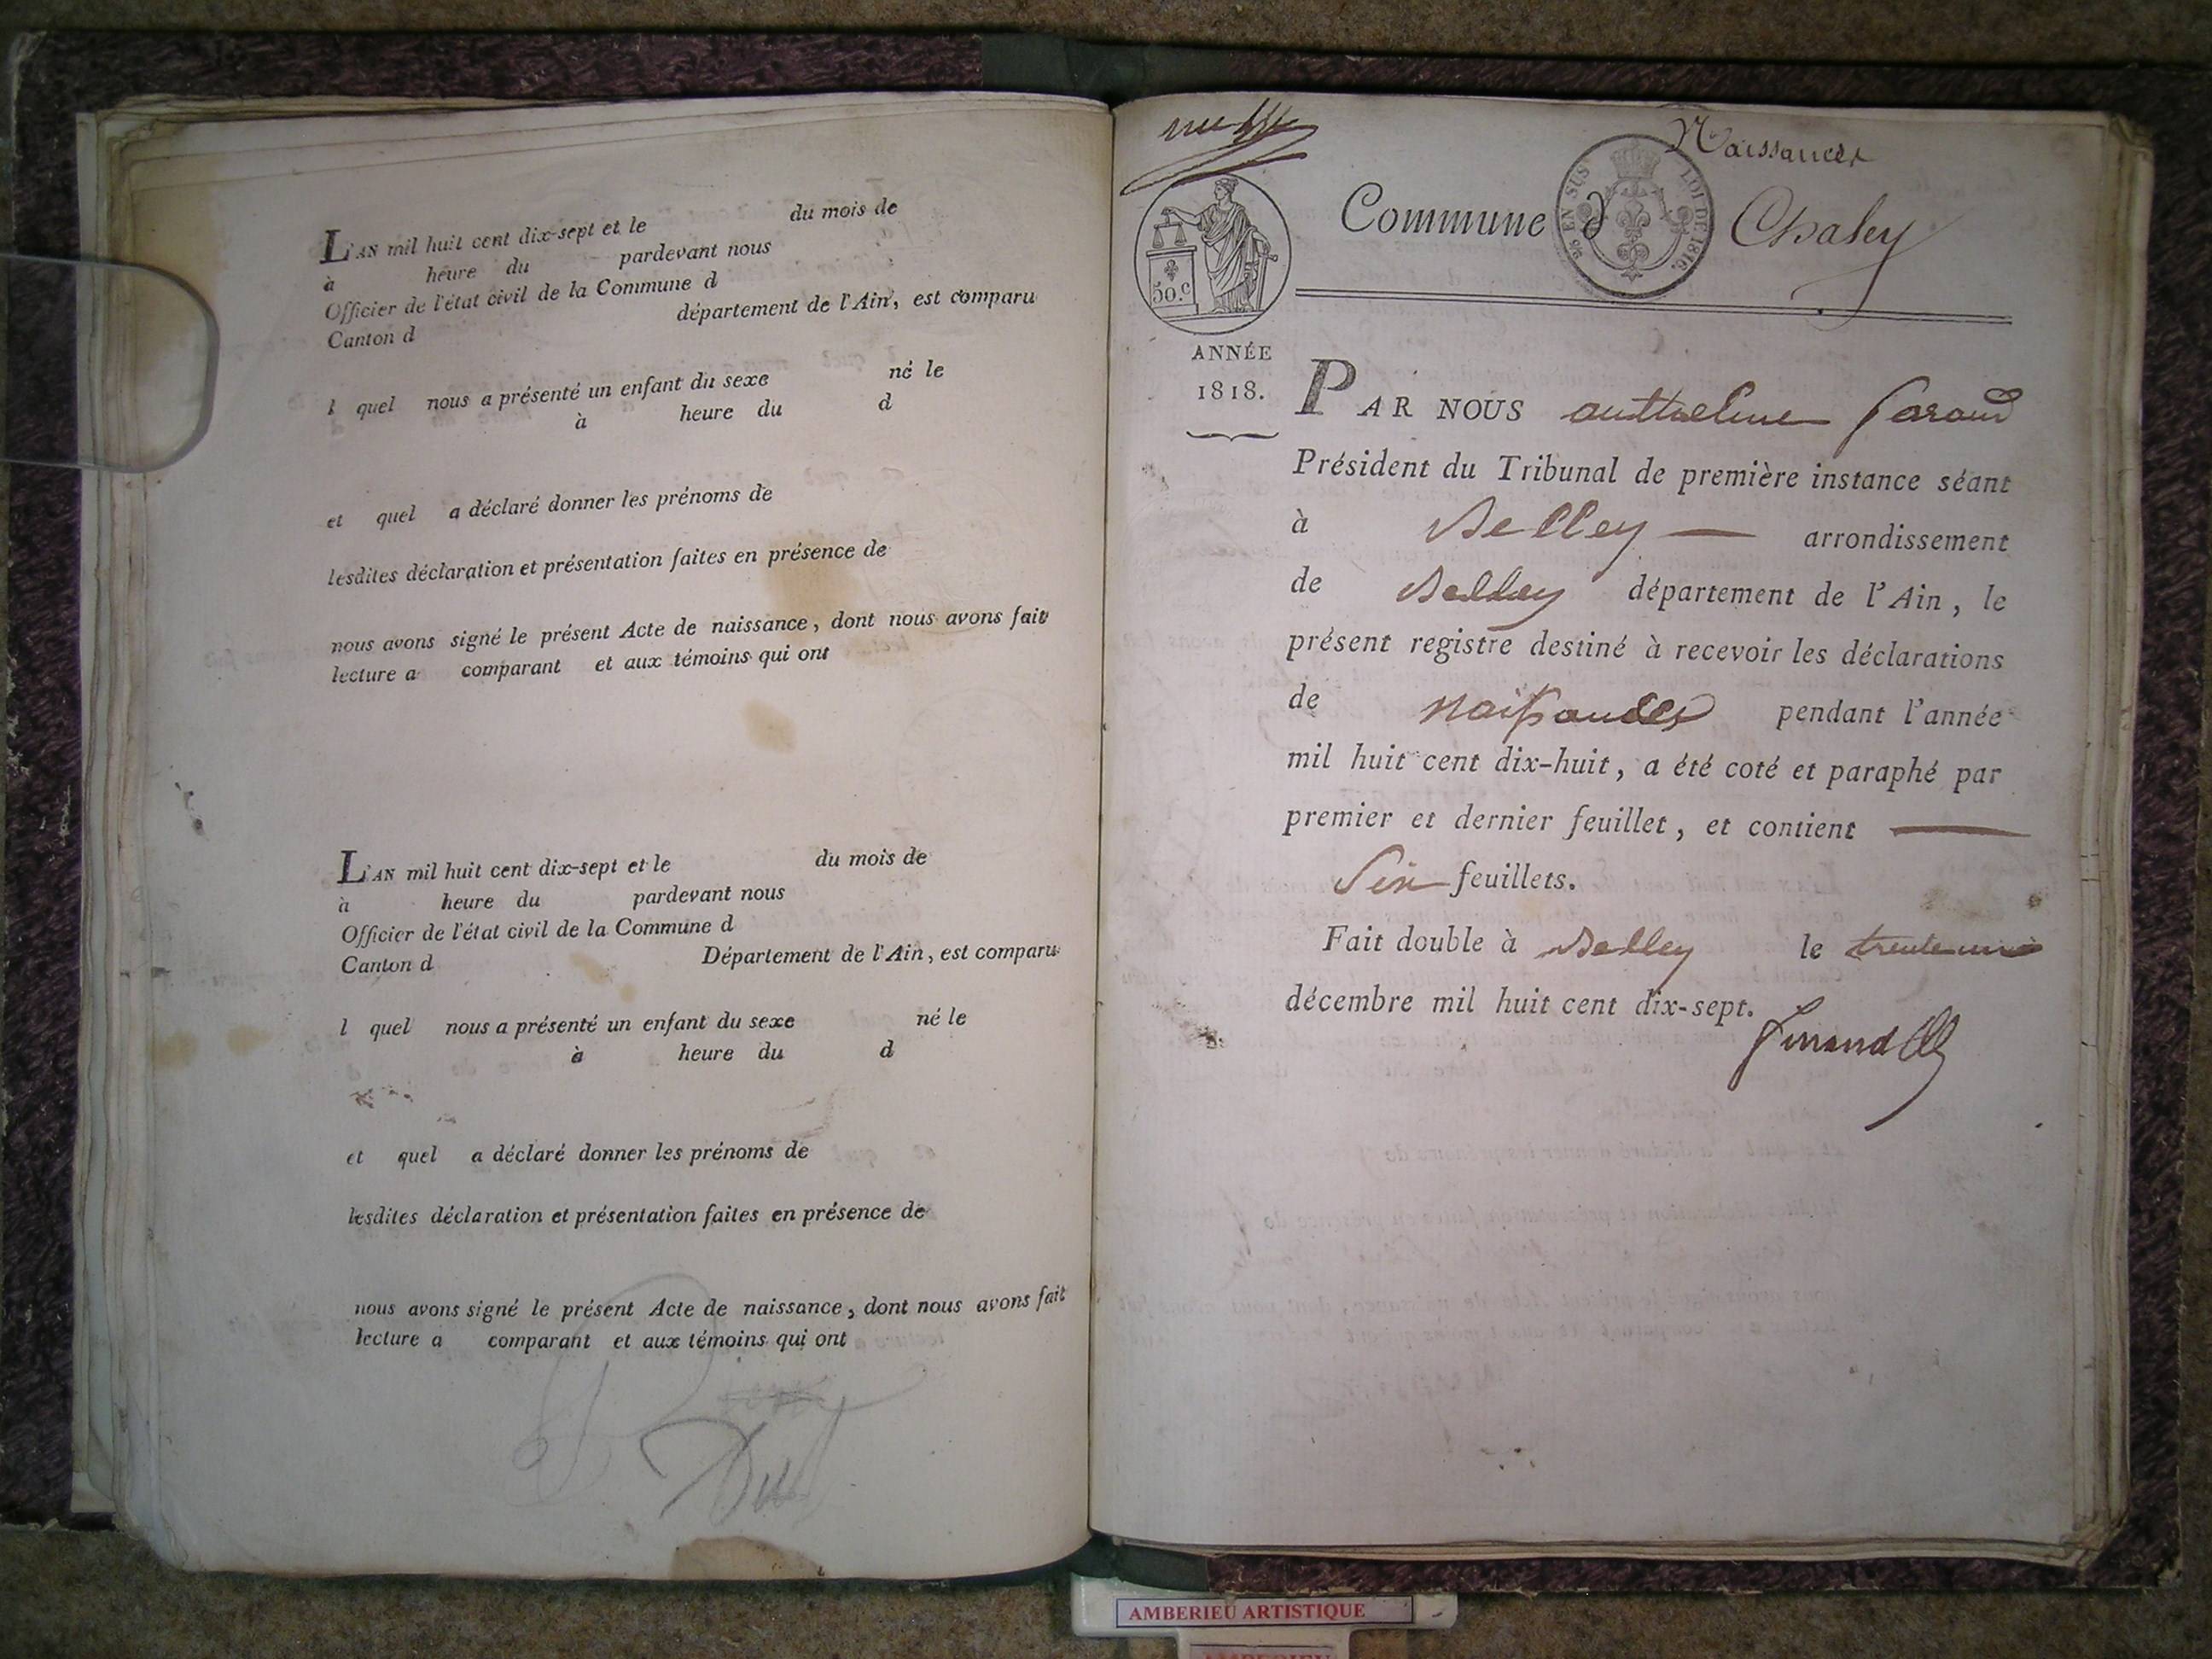 L'AN mil huit cent dix-sept et le du mois de
à heure du pardevant nous
Officier de l'état civil de la Commune d
Canton d département de l'Ain, est comparu
l quel nous a présenté un enfant du sexe né le
à heure du d
et quel a déclaré donner les prénoms de
lesdites déclaration et présentation faites en présence de
nous avons signé le présent Acte de naissance, dont nous avons fait
lecture a comparant et aux témoins qui ont
L'AN mil huit cent dix-sept et le du mois de
à heure du pardevant nous
Officier de l'état civil de la Commune d
Canton d Département de l'Ain, est comparu
l quel nous a présenté un enfant du sexe né le
à heure du d
et quel a déclaré donner les prénoms de
lesdites déclaration et présentation faites en présence de
nous avons signé le présent Acte de naissance, dont nous avons fait
lecture a comparant et aux témoins qui ont
Naissances
EN SUS LOI DE 1816.
Commune d Chaley
50.c
ANNÉE
1818.
PAR NOUS
Président du Tribunal de première instance séant
à Belley arrondissement
de Belley département de l'Ain, le
présent registre destiné à recevoir les déclarations
de Naissances pendant l'année
mil huit cent dix-huit, a été coté et paraphé par
premier et dernier feuillet, et contient
Six feuillets.
Fait double à Belley le trente un
décembre mil huit cent dix-sept.
AMBERIEU ARTISTIQUE
AMBERIEU